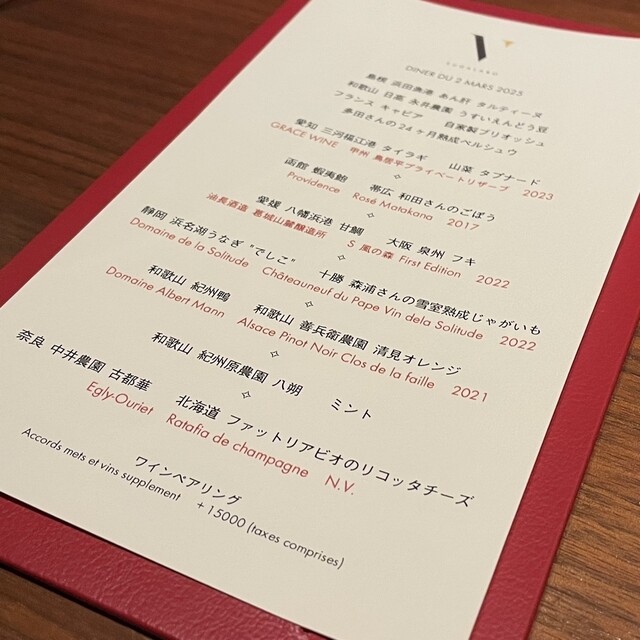 V
SUGALABO
DINER DU 2 MARS 2025
島根 浜田漁港 あん肝 タルティーヌ
和歌山 日高 永井農園 うすいえんどう豆
フランス キャビア 自家製ブリオッシュ
多田さんの24ヶ月熟成ペルシュウ
愛知 三河福江港 タイラギ 山菜 タプナード
GRACE WINE 甲州 鳥居平プライベートリザーブ 2023
函館 蝦夷鮑 帯広 和田さんのごぼう
Providence Rosé Matakana 2017
愛媛 八幡浜港 甘鯛 大阪 泉州 フキ
油長酒造 葛城山麓醸造所 S 風の森 First Edition 2022
静岡 浜名湖うなぎ "でしこ" 十勝 森浦さんの雪室熟成じゃがいも
Domaine de la Solitude Châteauneuf du Pape Vin dela Solitude 2022
和歌山 紀州鴨 和歌山 善兵衛農園 清見オレンジ
Domaine Albert Mann Alsace Pinot Noir Clos de la faille 2021
和歌山 紀州原農園 八朔 ミント
奈良 中井農園 古都華 北海道 ファットリアビオのリコッタチーズ
Egly-Ouriet Ratafia de champagne N.V.
ワインペアリング
Accords mets et vins supplement +15000 (taxes comprises)